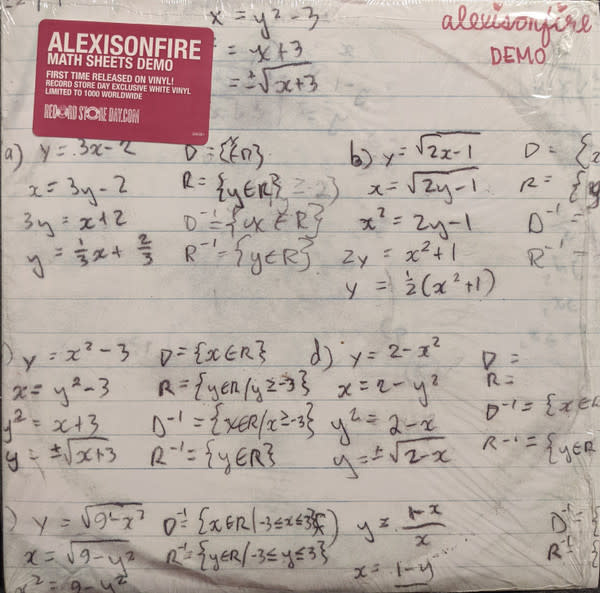 x = y² - 3
= x + 3
= ±√x+3
alexisonfire
DEMO
ALEXISONFIRE
MATH SHEETS DEMO
FIRST TIME RELEASED ON VINYL!
RECORD STORE DAY EXCLUSIVE WHITE VINYL
LIMITED TO 1000 WORLDWIDE
RECORD STORE DAY.COM
a) y = 3x-2 D =
x = 3y-2 R = {y∈R}
3y = x+2 D⁻¹ = {x∈R}
y = 1/3x + 2/3 R⁻¹ = {y∈R}
b) y = √2x-1 D = {x
x = √2y-1 R = {y
x² = 2y-1 D⁻¹ =
2y = x²+1 R⁻¹ =
y = 1/2(x²+1)
) y = x²-3 D = {x∈R}
x = y²-3 R = {y∈R/y≥-3}
y² = x+3 D⁻¹ = {x∈R/x≥-3}
y = ±√x+3 R⁻¹ = {y∈R}
d) y = 2-x² D =
x = 2-y² R =
y² = 2-x D⁻¹ = {x∈R
y = ±√2-x R⁻¹ = {y∈R
) y = √9-x² D⁻¹ = {x∈R/-3≤x≤3}
x = √9-y² R⁻¹ = {y∈R/-3≤y≤3}
x² = 9-y²
) y = 1-x/x D⁻¹ = {
x = 1-y R⁻¹ = {